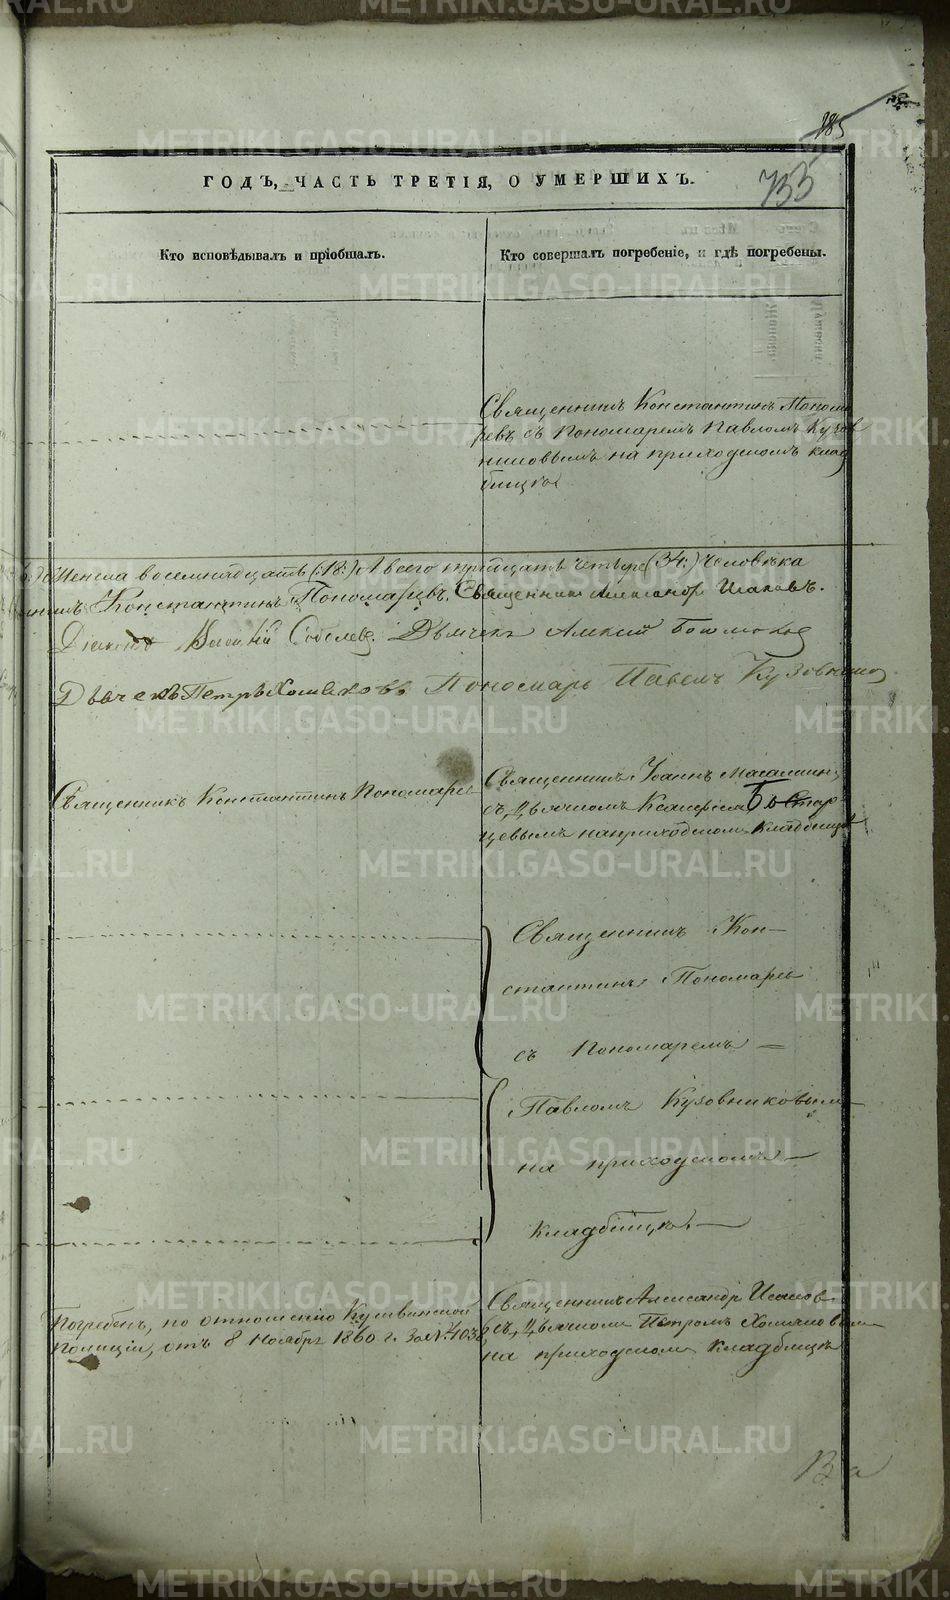 185
733
ГОДЪ, ЧАСТЬ ТРЕТІЯ, О УМЕРШИХЪ.
Кто исповѣдывалъ и пріобщалъ.
Кто совершалъ погребеніе, и гдѣ погребены.
Священникъ Константинъ Понома
ревъ съ Пономаремъ Павломъ Кузов
никовымъ на приходскомъ клад
бищѣ
Женска восемнадцать (:18:) А всего тридцать четыре (34:) человѣка
Константинъ Пономаревъ. Священникъ Александръ Исаковъ.
Соболевъ. Дьячекъ
Дьячекъ Петръ Хомяковъ Пономарь Павелъ Кузовнико
Священникъ Константинъ Пономарев
Священникъ Іоаннъ
съ Дьячкомъ Стар-
цевымъ на приходскомъ Кладбищѣ
Священникъ Кон-
стантинъ Пономарев
съ Пономаремъ
Павломъ Кузовниковым
на приходскомъ
Кладбищѣ.
Погребенъ, по отношенію Кушвинской
Полиціи, отъ 8 Ноября 1860 г. за № 1038
Священникъ Александръ Исаков
съ Дьячкомъ Петромъ Хомяковым
на приходскомъ Кладбищѣ
METRIKI.GASO-URAL.RU